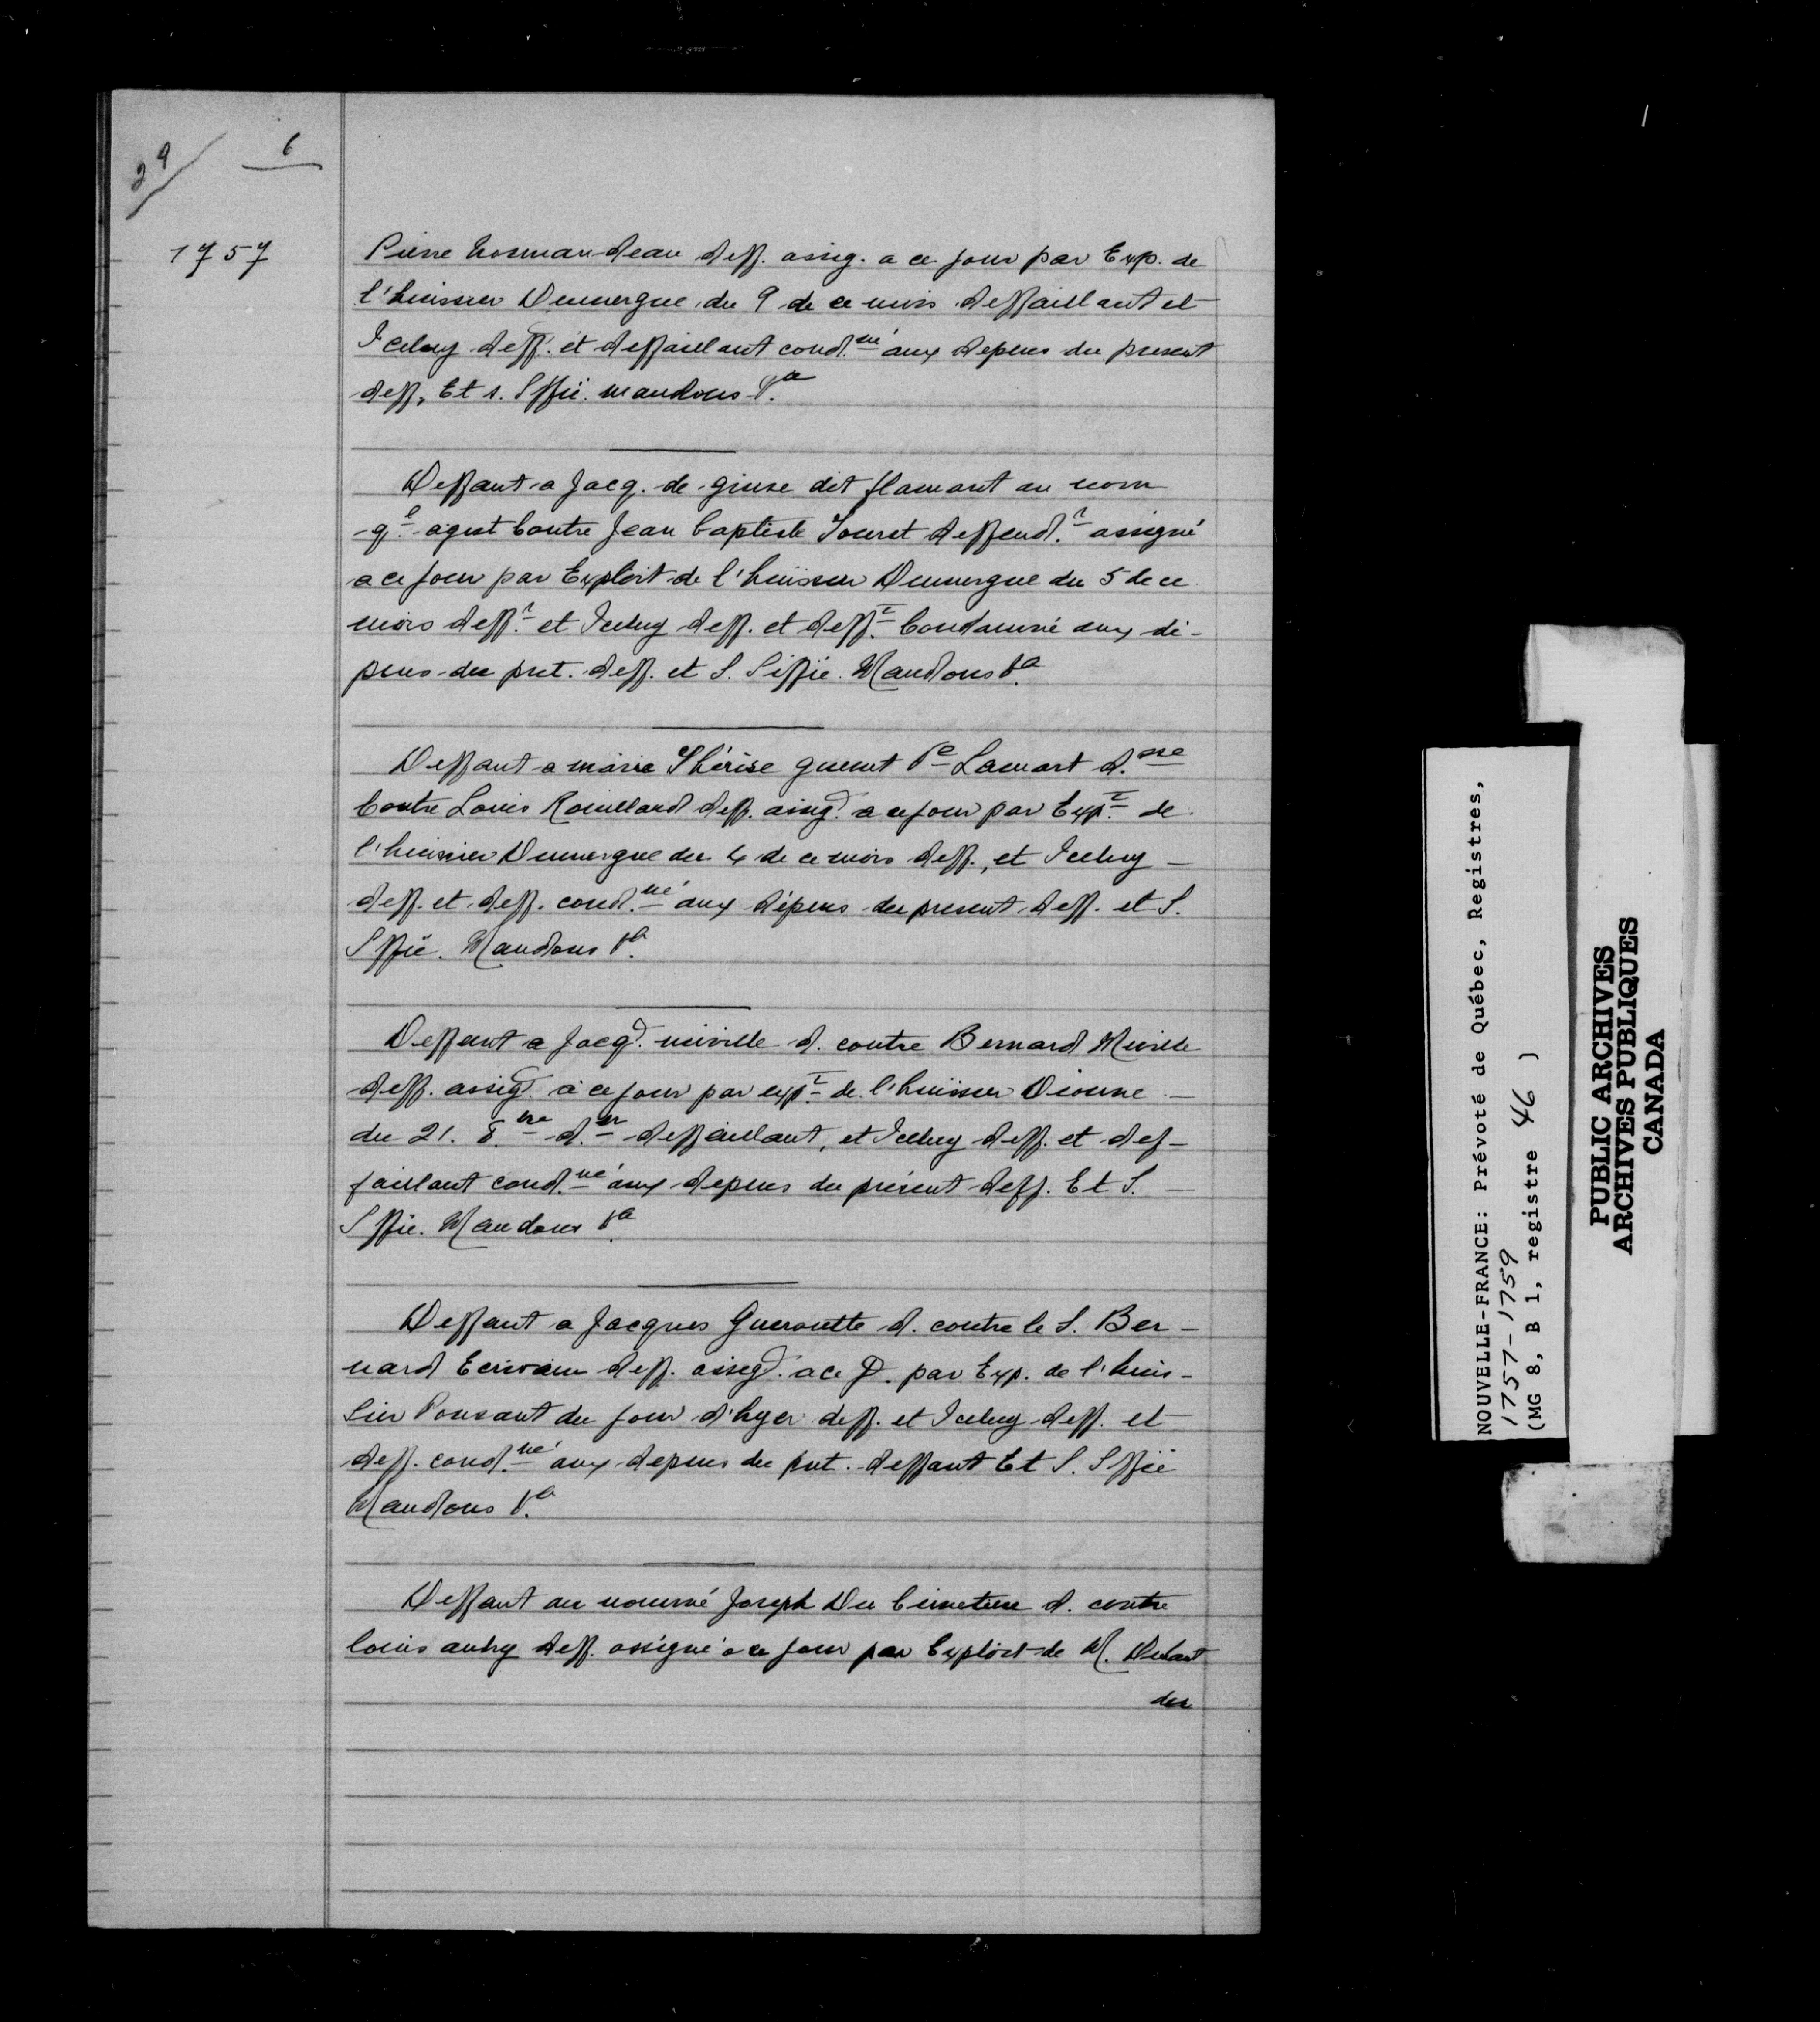 29/ 6
1757
Pierre Normandeau deff. assig. a ce jour par Exp. de
l'huissier Dumergue du 9 de ce mois deffaillant et
Iceluy deff. et deffaillant cond.né aux depens du present
deff, Et s. Sffié. mandons &a
Deffaut a Jacq. de giuse dit flamant au nom
q.l agist Contre Jean baptiste Touret deffend.r assigné
a ce jour par Exploit de l'huissier Dumergue du 5 de ce
mois deff.t et Iceluy deff. et deff.t Condamné aux dé-
pens du pret. deff. et S. Siffié. Mandons &a
Deffaut a marie Thérèse guenet Ve Lamart d.sse
Contre Louis Rouillard deff. assig. a ce jour par Exp.t de
l'huissier Dumergue du 4 de ce mois deff., et Iceluy
deff. et deff. cond.né aux dépens du present deff. et S.
Sffié. Mandons &a
Deffaut a Jacq. miville d. contre Bernard Miville
deff. assig. à ce jour par exp.t de l'huissier Dionne
du 21. 8.bre d.er deffaillant, et Iceluy deff. et def-
faillant cond.né aux depens du présent deff. Et S.
Sffié. Mandons &a
Deffaut a Jacques Guerouette d. contre le S. Ber-
nard Ecrivain deff. assig. a ce J. par Exp. de l'huis-
sier Ponsant du jour d'hyer deff. et Iceluy deff. et
deff. cond.né aux depens du pnt. deffaut Et S. Sffié
Mandons &a
Deffaut au nommé Joseph Du Cimetiere d. contre
louis aubry deff. assigné a ce jour par Exploit de M.
du
NOUVELLE-FRANCE: Prévoté de Québec, Registres,
1757-1759
(MG 8, B 1, registre 46 )
PUBLIC ARCHIVES
ARCHIVES PUBLIQUES
CANADA